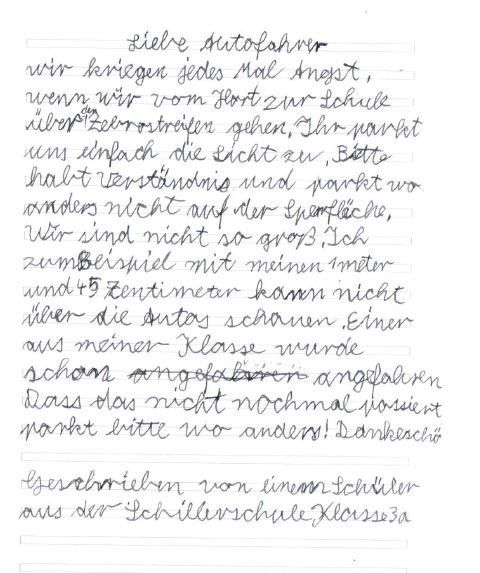 Liebe Autofahrer
wir kriegen jedes Mal Angst,
wenn wir vom Hort zur Schule
über den Zebrastreifen gehen. Ihr parkt
uns einfach die Sicht zu. Bitte
habt Verständnis und parkt wo
anders nicht auf der Sperrfläche.
Wir sind nicht so groß. Ich
zum Beispiel mit meinen 1 meter
und 45 Zentimeter kann nicht
über die Autos schauen. Einer
aus meiner Klasse wurde
schon angefahren angefahren
Dass das nicht nochmal passiert
parkt bitte wo anders! Dankeschö
Geschrieben von einem Schüler
aus der Schillerschule Klasse 3a